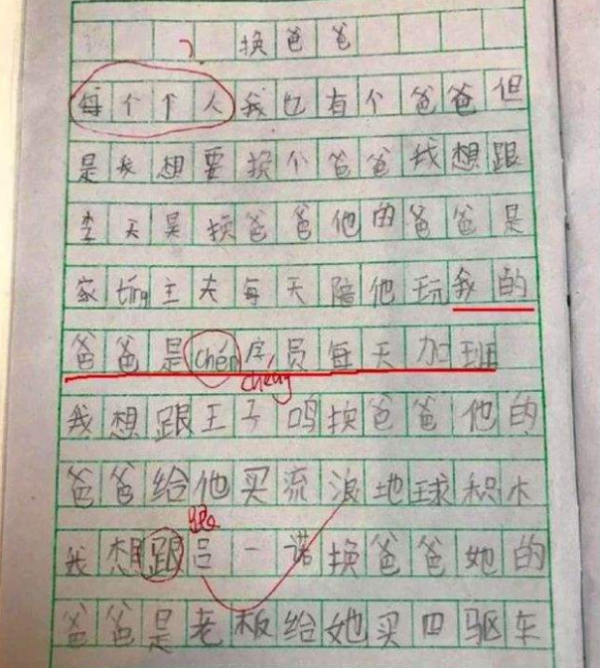 换爸爸
每个个人我也有个爸爸但
是我想要换个爸爸我想跟
李天昊换爸爸他的爸爸是
家tíng主夫每天陪他玩我的
爸爸是chén序员每天加班
chéng
我想跟王子鸣换爸爸他的
爸爸给他买流浪地球积木
跟
我想跟吕一诺换爸爸她的
爸爸是老板给她买四驱车